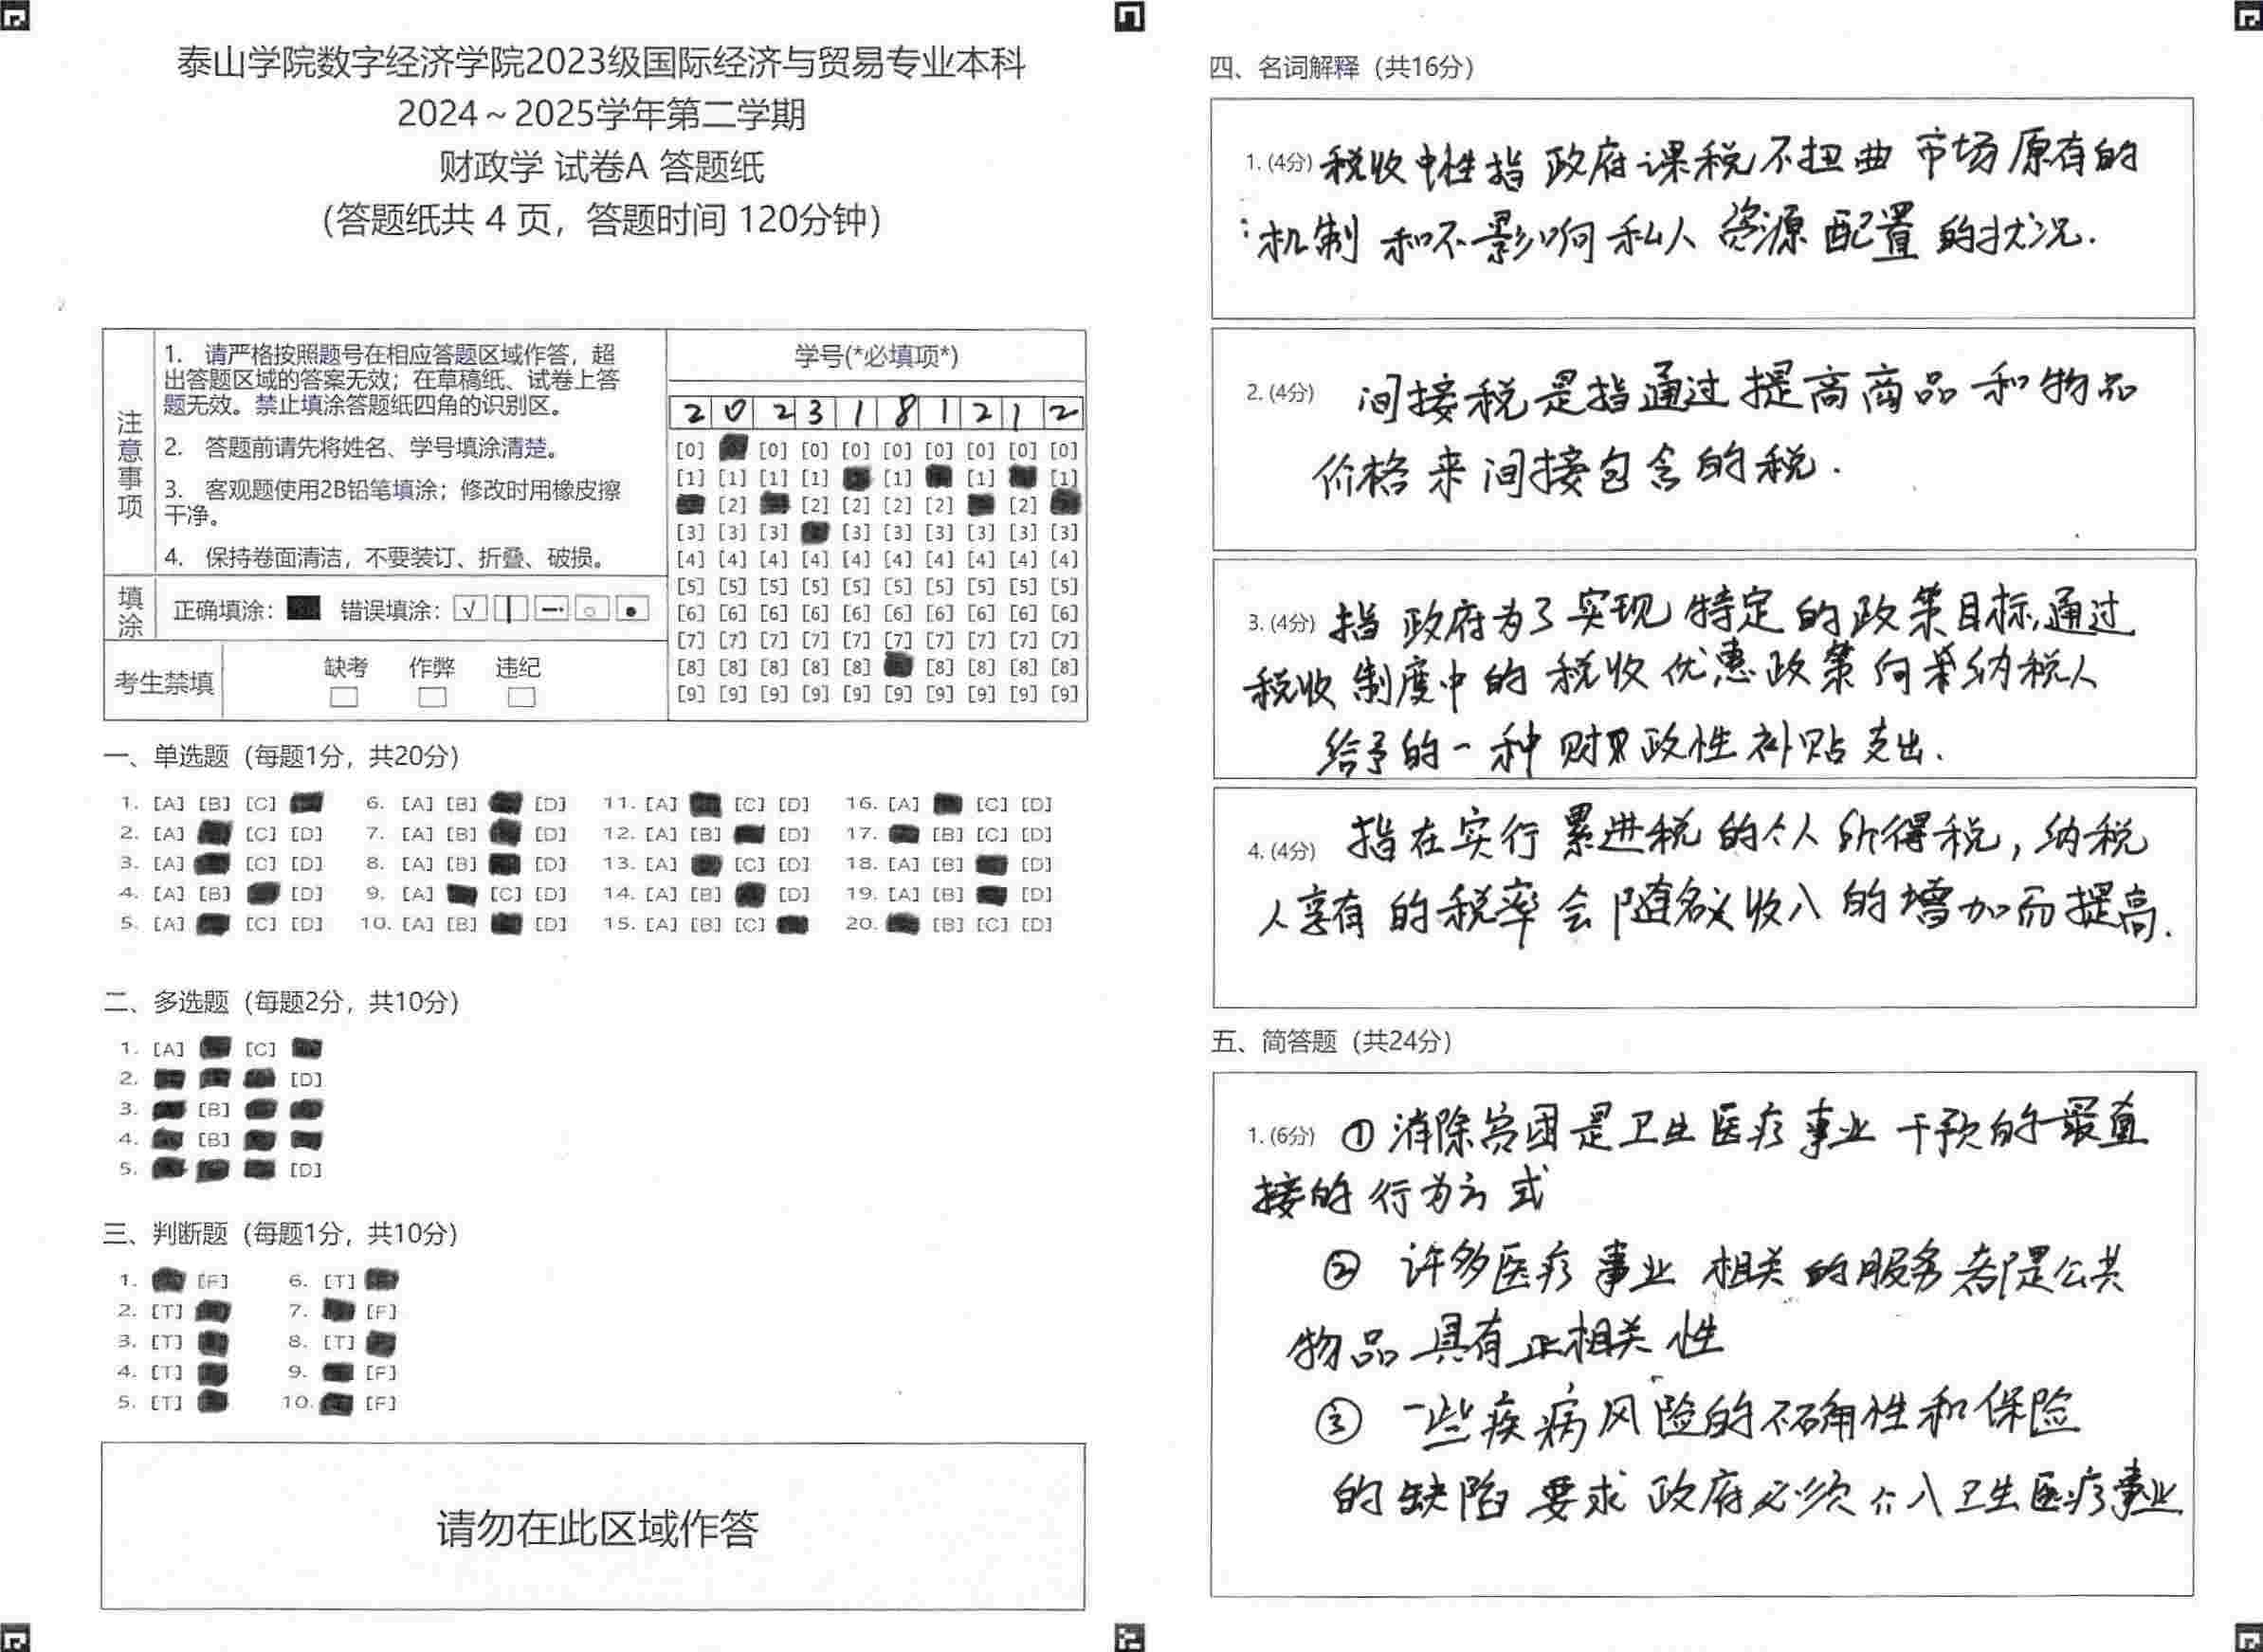 泰山学院数字经济学院2023级国际经济与贸易专业本科
2024～2025学年第二学期
财政学 试卷A 答题纸
（答题纸共 4 页，答题时间 120分钟）
注意事项
1. 请严格按照题号在相应答题区域作答，超
出答题区域的答案无效；在草稿纸、试卷上答
题无效。禁止填涂答题纸四角的识别区。
2. 答题前请先将姓名、学号填涂清楚。
3. 客观题使用2B铅笔填涂；修改时用橡皮擦
干净。
4. 保持卷面清洁，不要装订、折叠、破损。
填涂
正确填涂： 错误填涂：
考生禁填
缺考 作弊 违纪
学号(*必填项*)
2 0 2 3 1 8 1 2 1 2
[0] [0] [0] [0] [0] [0] [0] [0] [0]
[1] [1] [1] [1] [1] [1] [1]
[2] [2] [2] [2] [2] [2]
[3] [3] [3] [3] [3] [3] [3] [3] [3]
[4] [4] [4] [4] [4] [4] [4] [4] [4] [4]
[5] [5] [5] [5] [5] [5] [5] [5] [5] [5]
[6] [6] [6] [6] [6] [6] [6] [6] [6] [6]
[7] [7] [7] [7] [7] [7] [7] [7] [7] [7]
[8] [8] [8] [8] [8] [8] [8] [8] [8]
[9] [9] [9] [9] [9] [9] [9] [9] [9] [9]
一、单选题（每题1分，共20分）
1. [A] [B] [C] 6. [A] [B] [D] 11. [A] [C] [D] 16. [A] [C] [D]
2. [A] [C] [D] 7. [A] [B] [D] 12. [A] [B] [D] 17. [B] [C] [D]
3. [A] [C] [D] 8. [A] [B] [D] 13. [A] [C] [D] 18. [A] [B] [D]
4. [A] [B] [D] 9. [A] [C] [D] 14. [A] [B] [D] 19. [A] [B] [D]
5. [A] [C] [D] 10. [A] [B] [D] 15. [A] [B] [C] 20. [B] [C] [D]
二、多选题（每题2分，共10分）
1. [A] [C]
2. [D]
3. [B]
4. [B]
5. [D]
三、判断题（每题1分，共10分）
1. [F] 6. [T]
2. [T] 7. [F]
3. [T] 8. [T]
4. [T] 9. [F]
5. [T] 10. [F]
请勿在此区域作答
四、名词解释（共16分）
1. (4分) 税收中性指政府课税不扭曲市场原有的
机制和不影响私人资源配置的状况.
2. (4分) 间接税是指通过提高商品和物品
价格来间接包含的税.
3. (4分) 指政府为了实现特定的政策目标,通过
税收制度中的税收优惠政策向纳税人
给予的一种财政性补贴支出.
4. (4分) 指在实行累进税的个人所得税，纳税
人享有的税率会随名义收入的增加而提高.
五、简答题（共24分）
1. (6分) ①消除穷困是卫生医疗事业干预的最直
接的行为方式
② 许多医疗事业相关的服务都是公共
物品具有正相关性
③ 一些疾病风险的不确性和保险
的缺陷要求政府必须介入卫生医疗事业